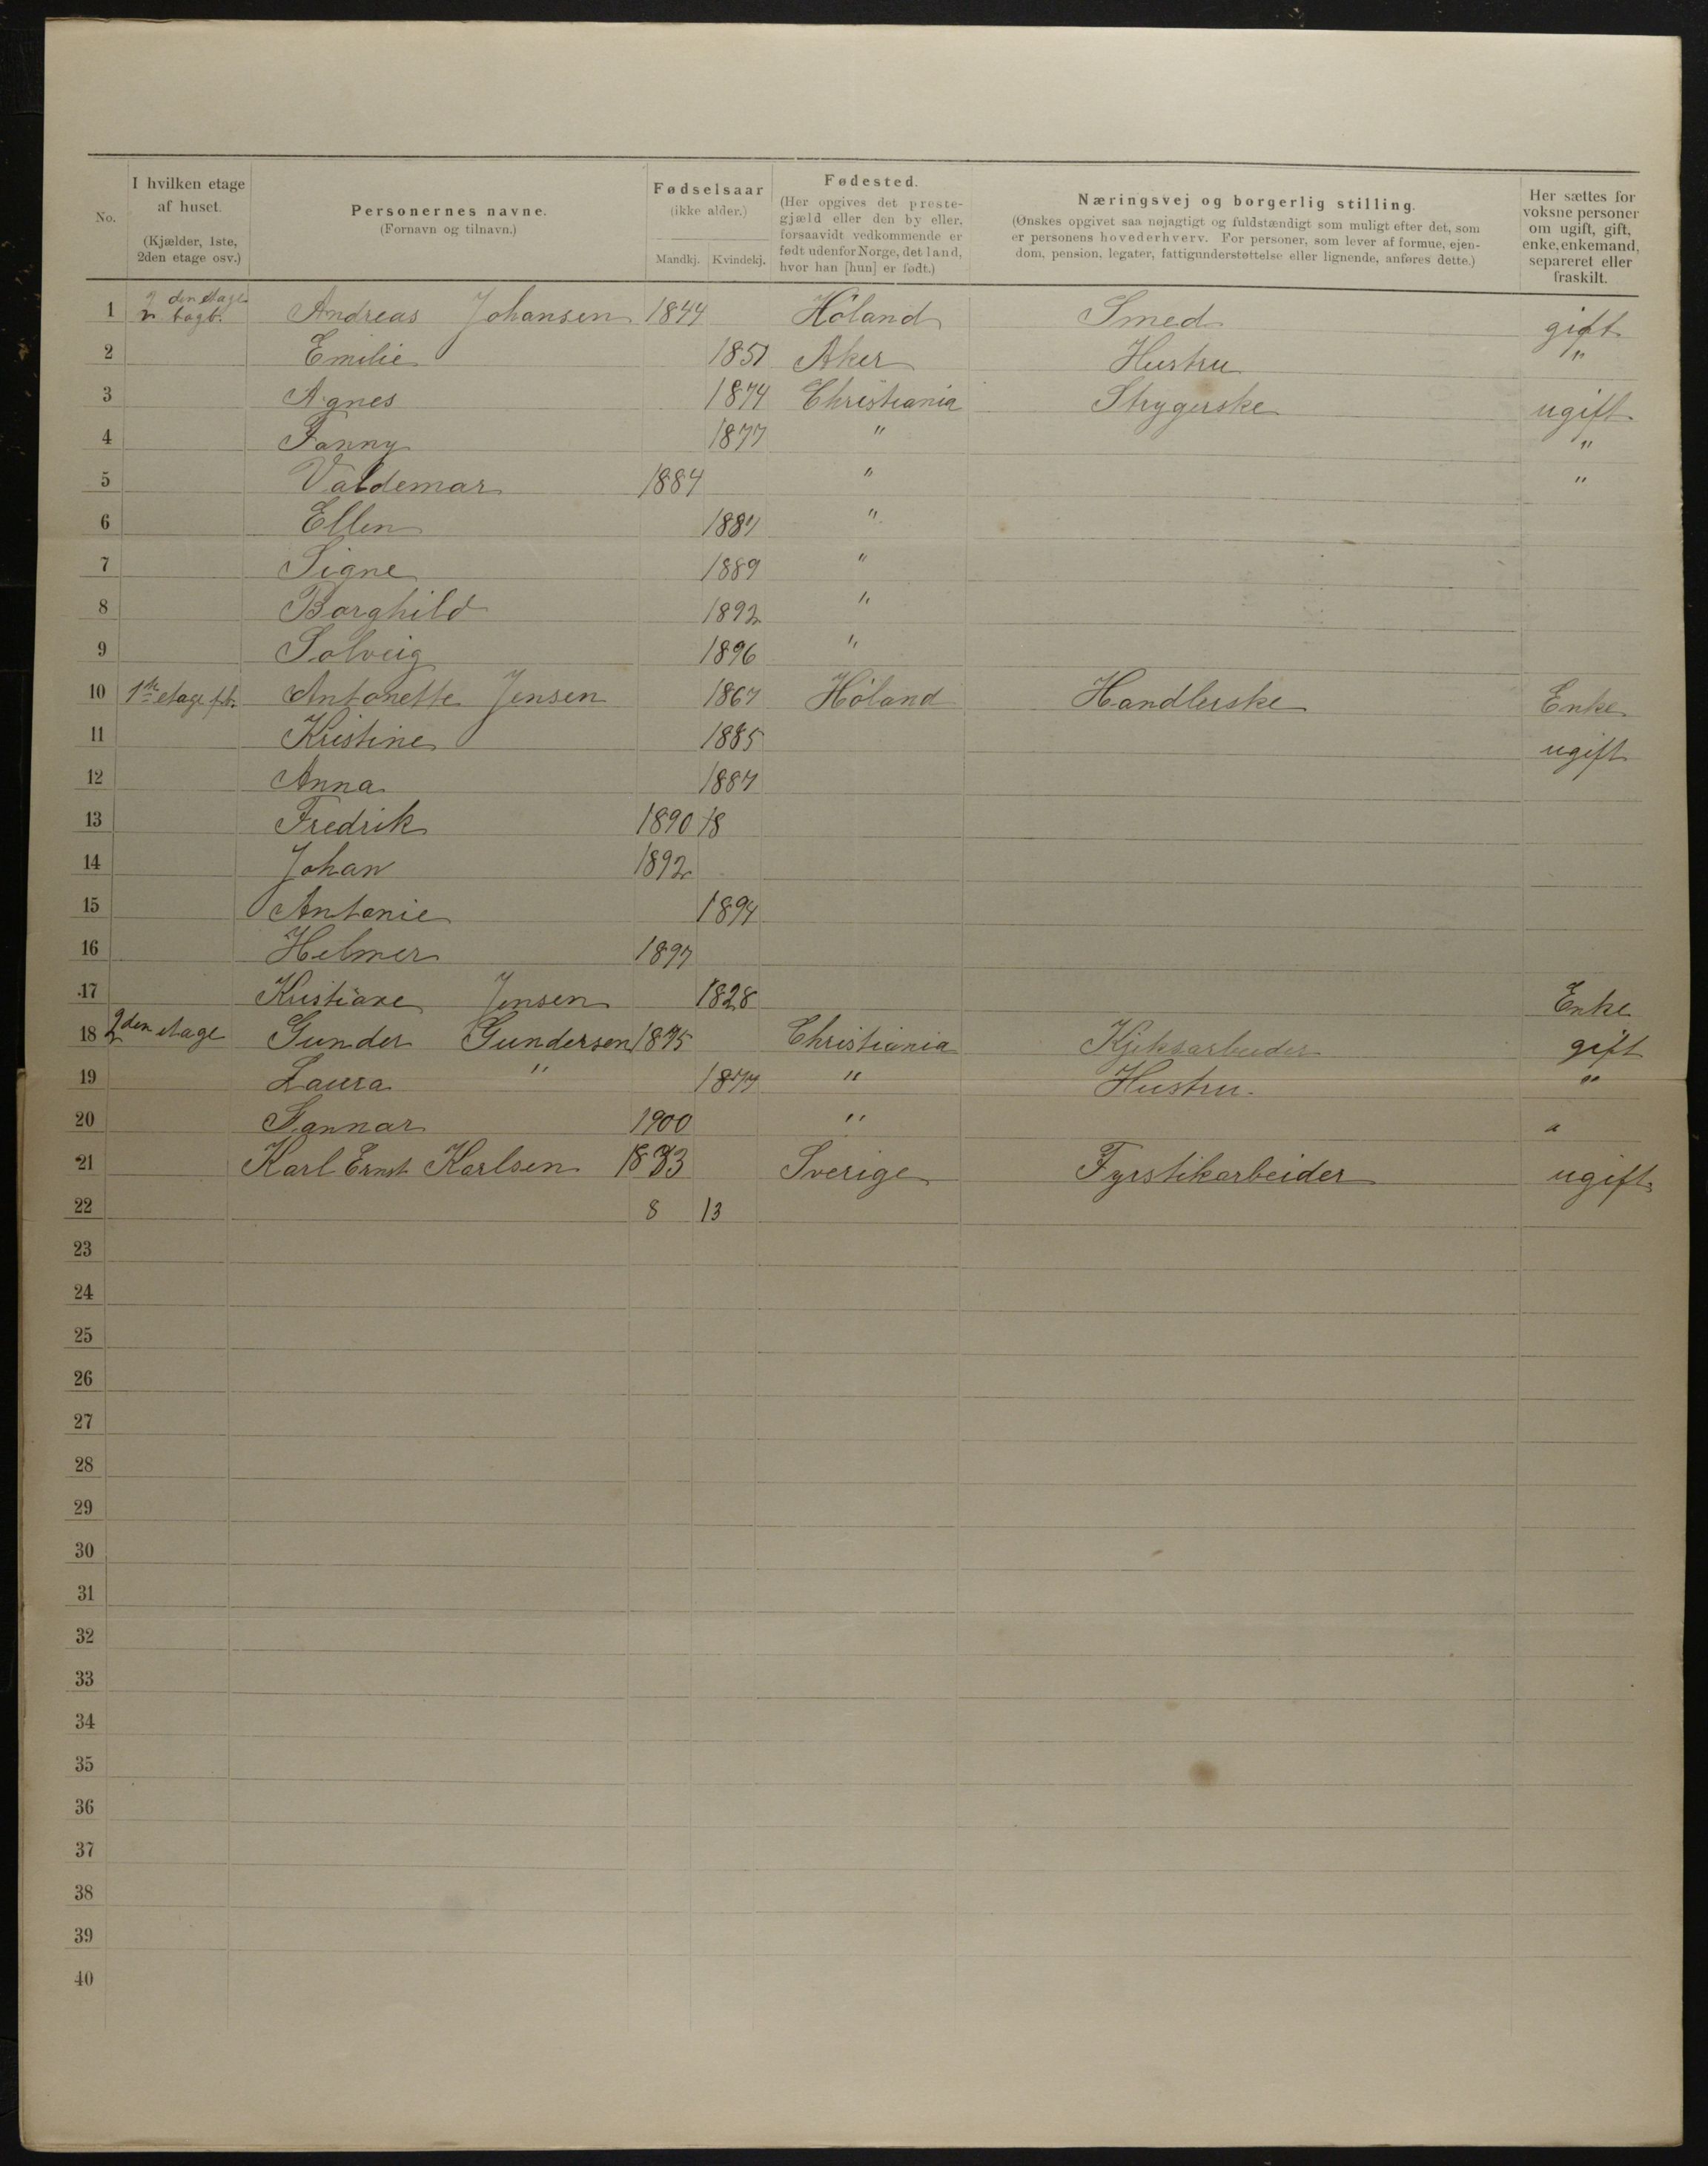 No.
I hvilken etage af huset. (Kjælder, 1ste, 2den etage osv.)
Personernes navne. (Fornavn og tilnavn.)
Fødselsaar (ikke alder.) Mandkj. Kvindekj.
Fødested. (Her opgives det prestegjæld eller den by eller, forsaavidt vedkommende er født udenfor Norge, det land, hvor han [hun] er født.)
Næringsvej og borgerlig stilling. (Ønskes opgivet saa nøjagtigt og fuldstændigt som muligt efter det, som er personens hovederhverv. For personer, som lever af formue, ejendom, pension, legater, fattigunderstøttelse eller lignende, anføres dette.)
Her sættes for voksne personer om ugift, gift, enke, enkemand, separeret eller fraskilt.
1 2 den etage bagb. Andreas Johansen 1844 Höland Smed gift
2 Emilie 1851 Aker Hustru "
3 Agnes 1874 Christiania Strygerske ugift
4 Fanny 1877 " "
5 Valdemar 1884 " "
6 Ellen 1887 "
7 Signe 1889 "
8 Borghild 1892 "
9 Solveig 1896 "
10 1ste etage fb. Antonette Jensen 1867 Höland Handlerske Enke
11 Kristine 1885 ugift
12 Anna 1887
13 Fredrik 1890 18
14 Johan 1892
15 Antonie 1894
16 Helmer 1897
17 Kristiane Jensen 1828 Enke
18 2den etage Gunder Gundersen 1875 Christiania Kjeksarbeider gift
19 Laura " 1877 " Hustru "
20 1900 " "
21 Karl Ernst Karlsen Sverige Fyrstikarbeider ugift
22 8 13
23
24
25
26
27
28
29
30
31
32
33
34
35
36
37
38
39
40